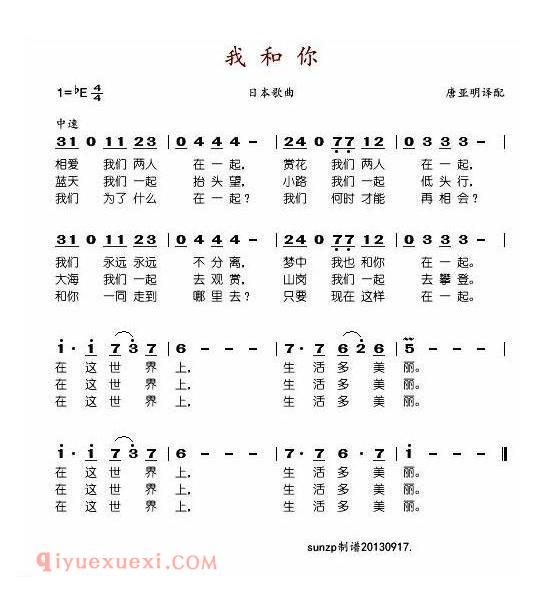 我 和 你
1=♭E 4/4 日本歌曲 唐亚明译配
中速
31 0 11 23 | 0 4 4 4 - | 24 0 77 12 | 0 3 3 3 - |
相爱 我们 两人 在 一 起， 赏花 我们 两人 在 一 起，
蓝天 我们 一起 抬 头 望， 小路 我们 一起 低 头 行，
我们 为了 什么 在 一 起？ 我们 何时 才能 再 相 会？
31 0 11 23 | 0 4 4 4 - | 24 0 77 12 | 0 3 3 3 - |
我们 永远 永远 不 分 离， 梦中 我也 和你 在 一 起。
大海 我们 一起 去 观 赏， 山岗 我们 一起 去 攀 登。
和你 一同 走到 哪 里 去？ 只要 现在 这样 在 一 起。
i · i 7 3 7 | 6 - - - | 7 · 7 6 2 6 | 5 - - - |
在 这 世 界 上， 生 活 多 美 丽。
在 这 世 界 上， 生 活 多 美 丽。
在 这 世 界 上， 生 活 多 美 丽。
i · i 7 3 7 | 6 - - - | 7 · 7 6 7 | i - - - ‖
在 这 世 界 上， 生 活 多 美 丽。
在 这 世 界 上， 生 活 多 美 丽。
在 这 世 界 上， 生 活 多 美 丽。
sunzp制谱20130917.
qiyuexuexi.com